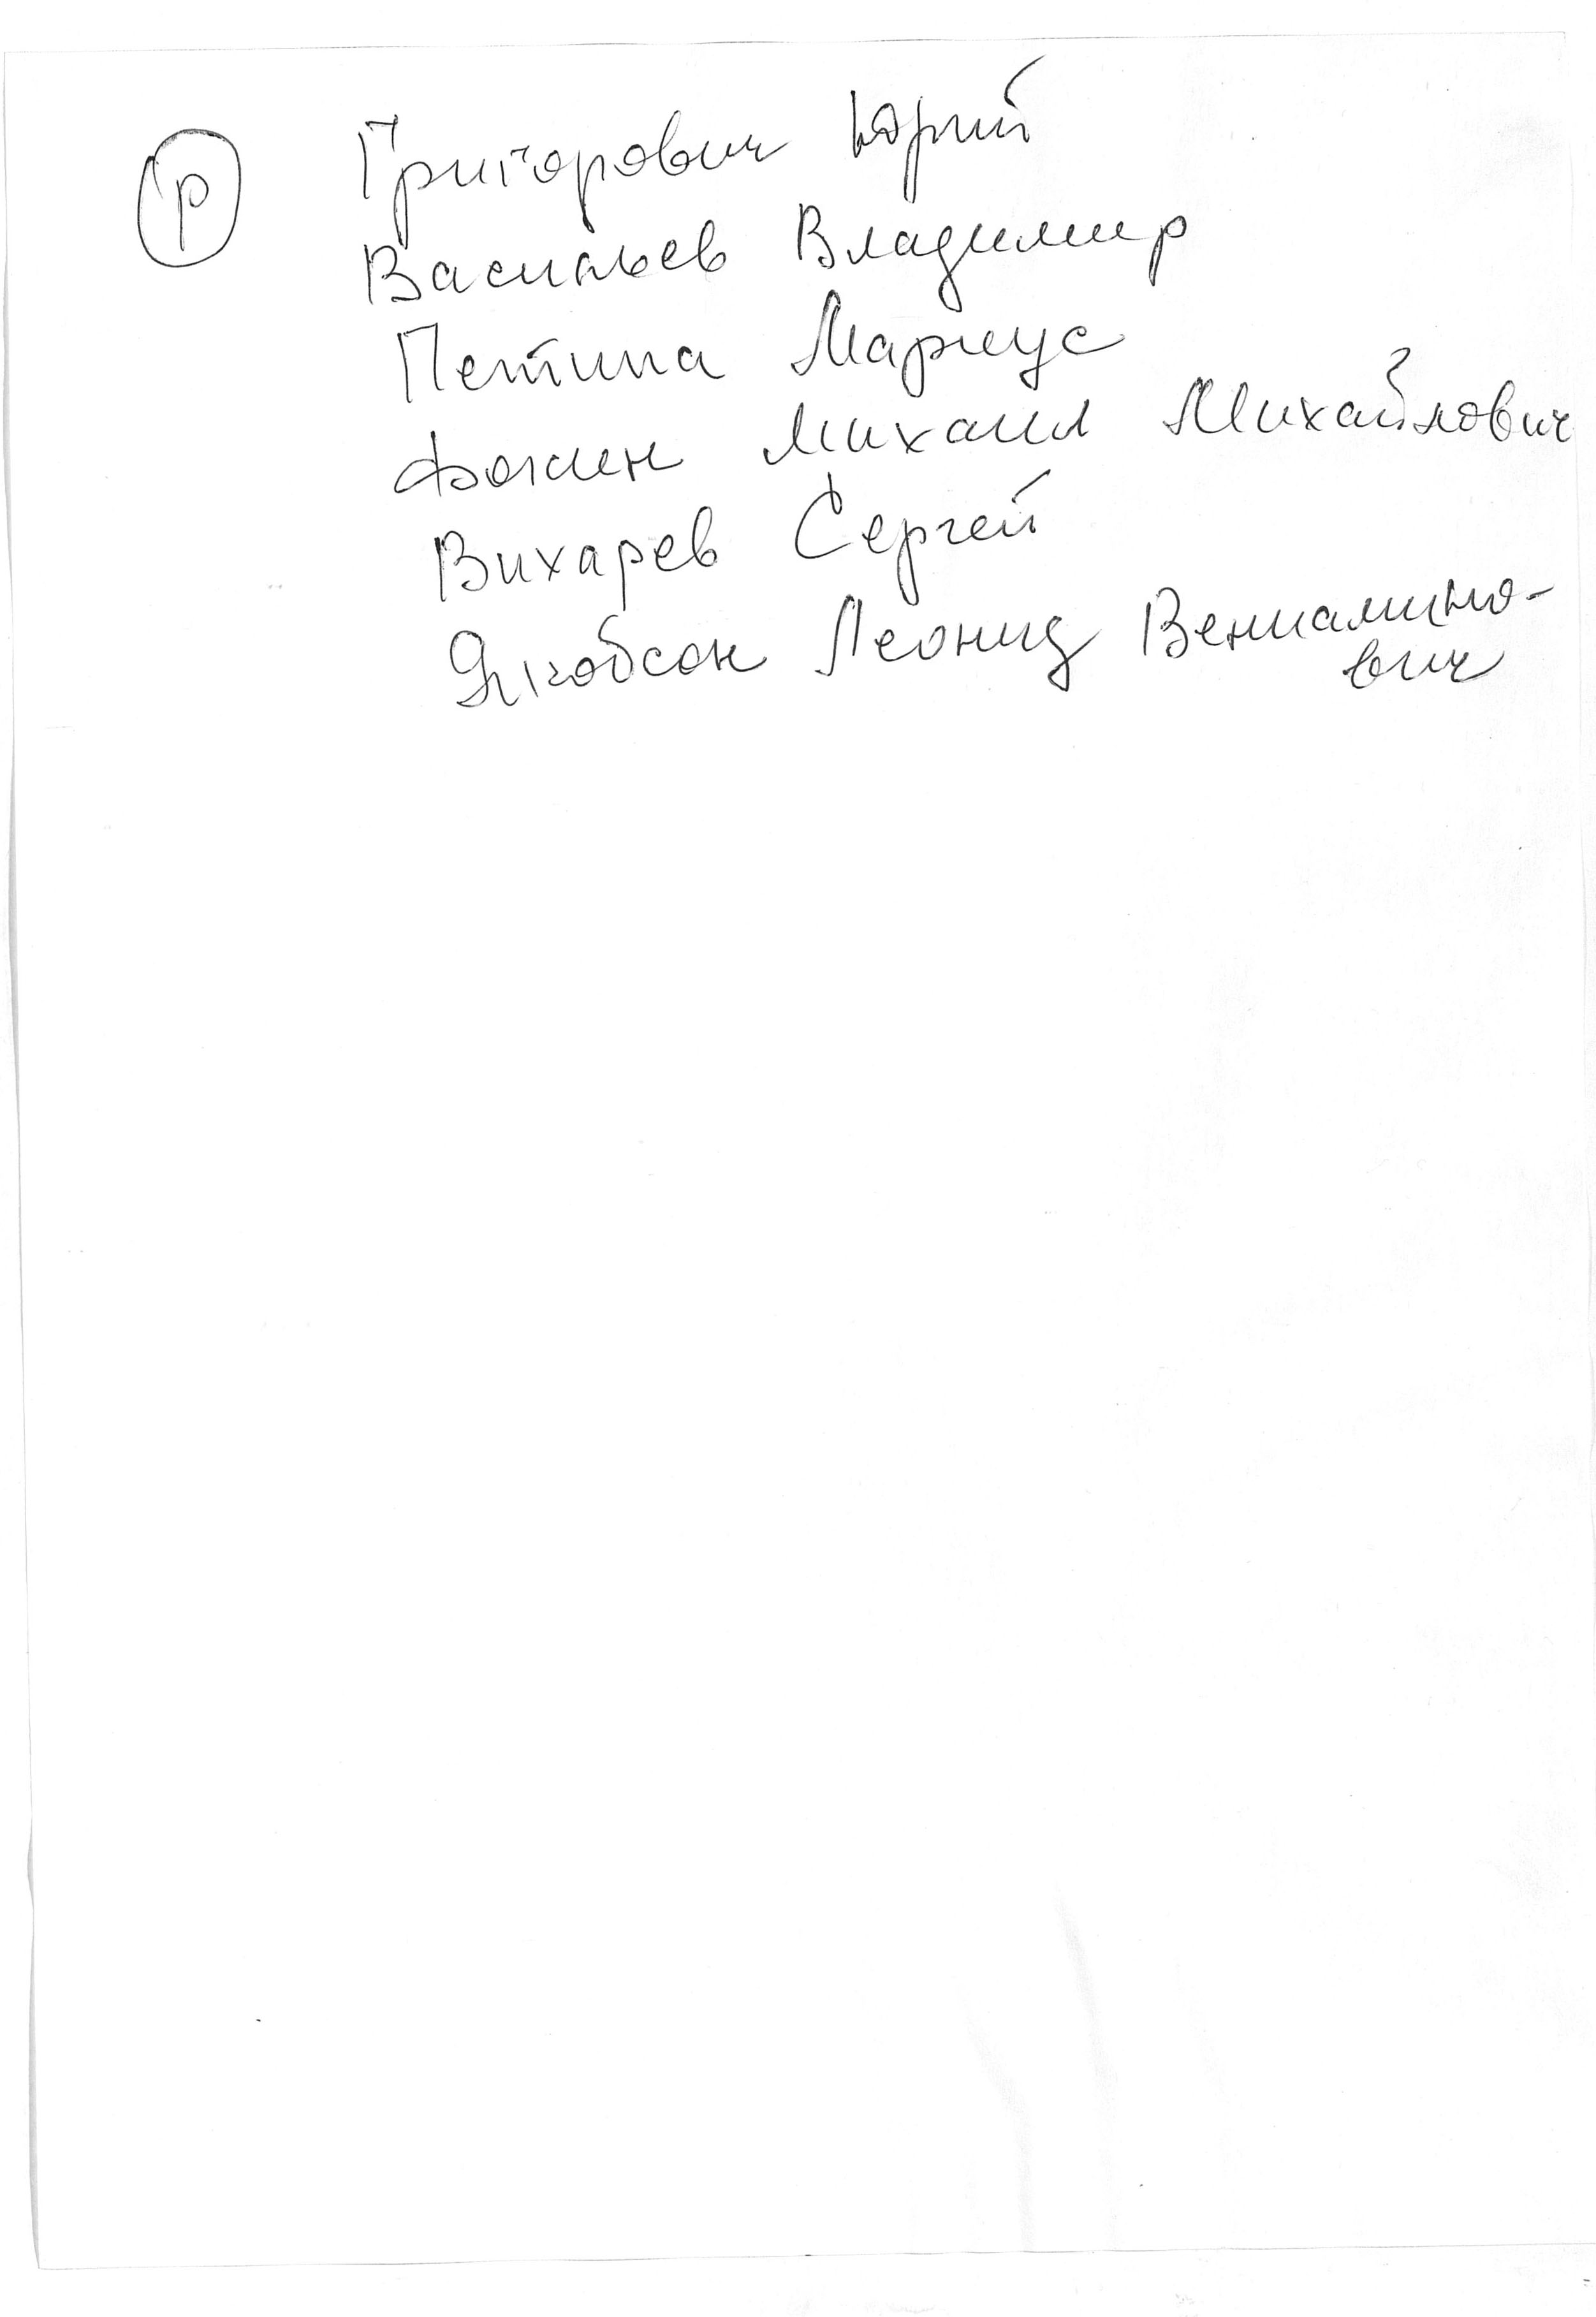 р Григорович Юрий
Васильев Владимир
Петипа Мариус
Фокин Михаил Михайлович
Вихарев Сергей
Якобсон Леонид Вениамино-
вич